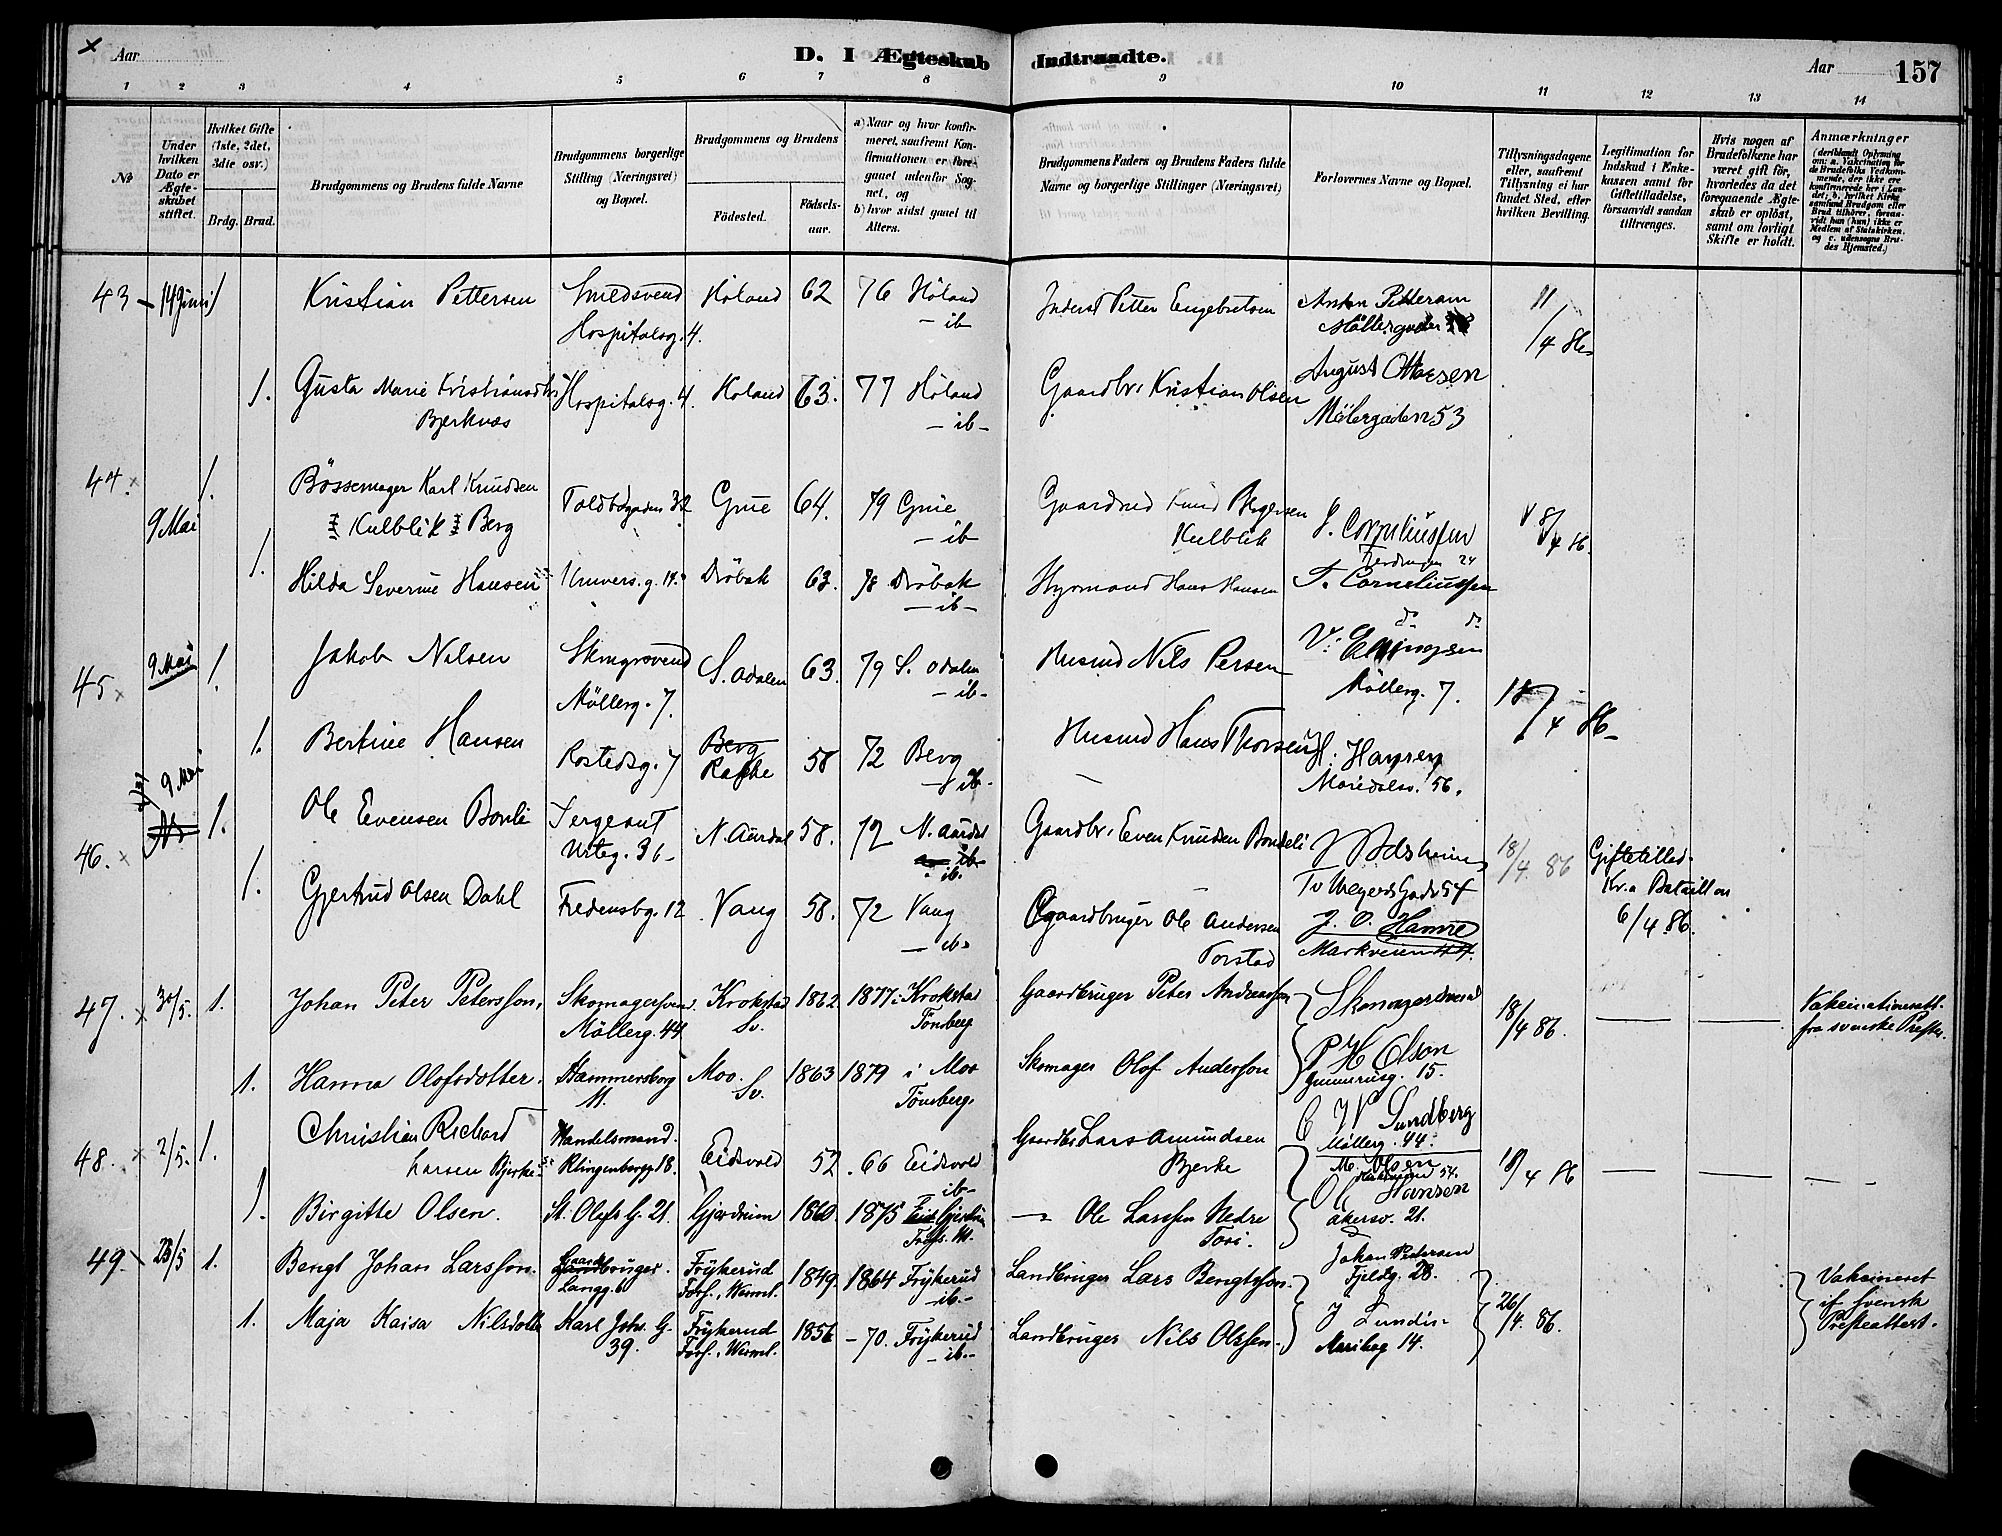 Aar
D. I Ægteskab Indtraadte.
Aar
157
1 2 3 4 5 6 7 8 9 10 11 12 13 14
No
Under hvilken Dato er Ægteskabet stiftet.
Hvilket Gifte (1ste, 2det, 3die osv.)
Brdg. Brud.
Brudgommens og Brudens fulde Navne
Brudgommens borgerlige Stilling (Næringsvei) og Bopæl.
Brudgommens og Brudens
Fødested.
Fødselsaar.
a) Naar og hvor konfirmeret, saafremt Konfirmationen er foregaaet udenfor Sognet, og
b) hvor sidst gaaet til Alters.
Brudgommens Faders og Brudens Faders fulde Navne og borgerlige Stillinger (Næringsvei)
Forlovernes Navne og Bopæl.
Tillysningsdagene eller, saafremt Tillysning ei har fundet Sted, efter hvilken Bevilling.
Legitimation for Indskud i Enkekassen samt for Giftetilladelse, forsaavidt saadan tiltrænges.
Hvis nogen af Brudefolkene har været gift før, hvorledes da det foregaaende Ægteskab er opløst, samt om lovligt Skifte er holdt.
Anmærkninger
43 14 Juni Kristian Pettersen Smedsvend Høland 62 76 Høland Inderst Petter Engebretsen Anton Pettersen 11
Hospitalsg. 4. - ib - Møllergaden /4 86
1. Gusta Marie Kristiansdtr Hospitalsg. 4. Høland 63. 77 Høland Gaardbr. Kristian Olsen August Ottesen
Bjerknæs - ib - Møllergaden 53
44. 9 Mai 1. Bøssemager Karl Knudsen Toldbodgaden 32 Grue 64. 79 Grue Gaardmd Knud Birgersen J. Corneliussen 18/4 86.
Kulblik Berg - ib - Kulblik 24
1. Hilda Severine Hansen Univers. g. 14. Drøbak 63. 78 Drøbak Styrmand Hans Hansen T. Corneliussen
- ib - do do
45 9. Mai 1. Jakob Nilsen S. Odalen 63. 79 S. Odalen Husmd Nils Persen V. Ellingsen
Møllerg. 7. - ib - Møllerg. 7. 18/4 86
1. Bertine Hansen Rostedsg. 7 Berg 58 72 Berg Husmd Hans Thorsen H. Hansen
Rakke - ib - Maridalsv. 56.
46. 9 Mai 1. Ole Evensen Bonli Sergeant N. Aurdal 58. 72 N. Aurdal Gaardbr. Even Knudsen Bondeli 18/4. 86 Giftetillad.
Urteg. 36 ib. Tv Meyers Gade 54 Kr.a Bataillon
1. Gjertrud Olsen Dahl Fredensbg. 12 Vang 58. 72 Vang Gaardbruger Ole Andersen J. O. Hamre 6/4 86.
- ib - Torstad Markveien
47. 30/5. 1. Johan Peter Petersson, Skomagersvend Krokstad 1862 1877 i Krokstad Gaardbruger Peter Andreasson Skomagersvend 18/4 86. Vakcinationsatt.
Møllerg. 44 Sv. Tönsberg fra svenske Prester.
1. Hanna Olofsdotter. Hammersborg Moo. 1863 1879 i Moo Skomager Olof Anderson P H Olson
11. Sv. Tönsberg. 15.
48. 2/5. 1. Christian Richard Handelsmand. Eidsvold 52 66 Eidsvold Gaardbr Lars Amundsen C W Sundberg
Larsen Bjerke Klingenbergg 18. - ib - Bjerke Møllerg. 44. M. Olsen 54. 18/4 86
1. Birgitte Olsen. St. Olafs G. 21. Gjerdrum 1860. 1875 Ole Larssen Nedre Hansen
Akersv. 21.
49. 23/5 1. Bengt Johan Larsson. Langg. 6 Frykerud 1849 1864 Frykerud Landbruger Lars Bengtsson. Johan Petersen
Fors., Werml. - ib - Fjeldg. 28. 26/4. 86. Vakcineret
1. Maja Kaisa Nilsdotter Karl Johs. G. Frykerud 1856 - 70. Frykerud Landbruger Nils Olsson J Lundin if svensk
39. Fors., Werml. - ib - 14. Presteattest.